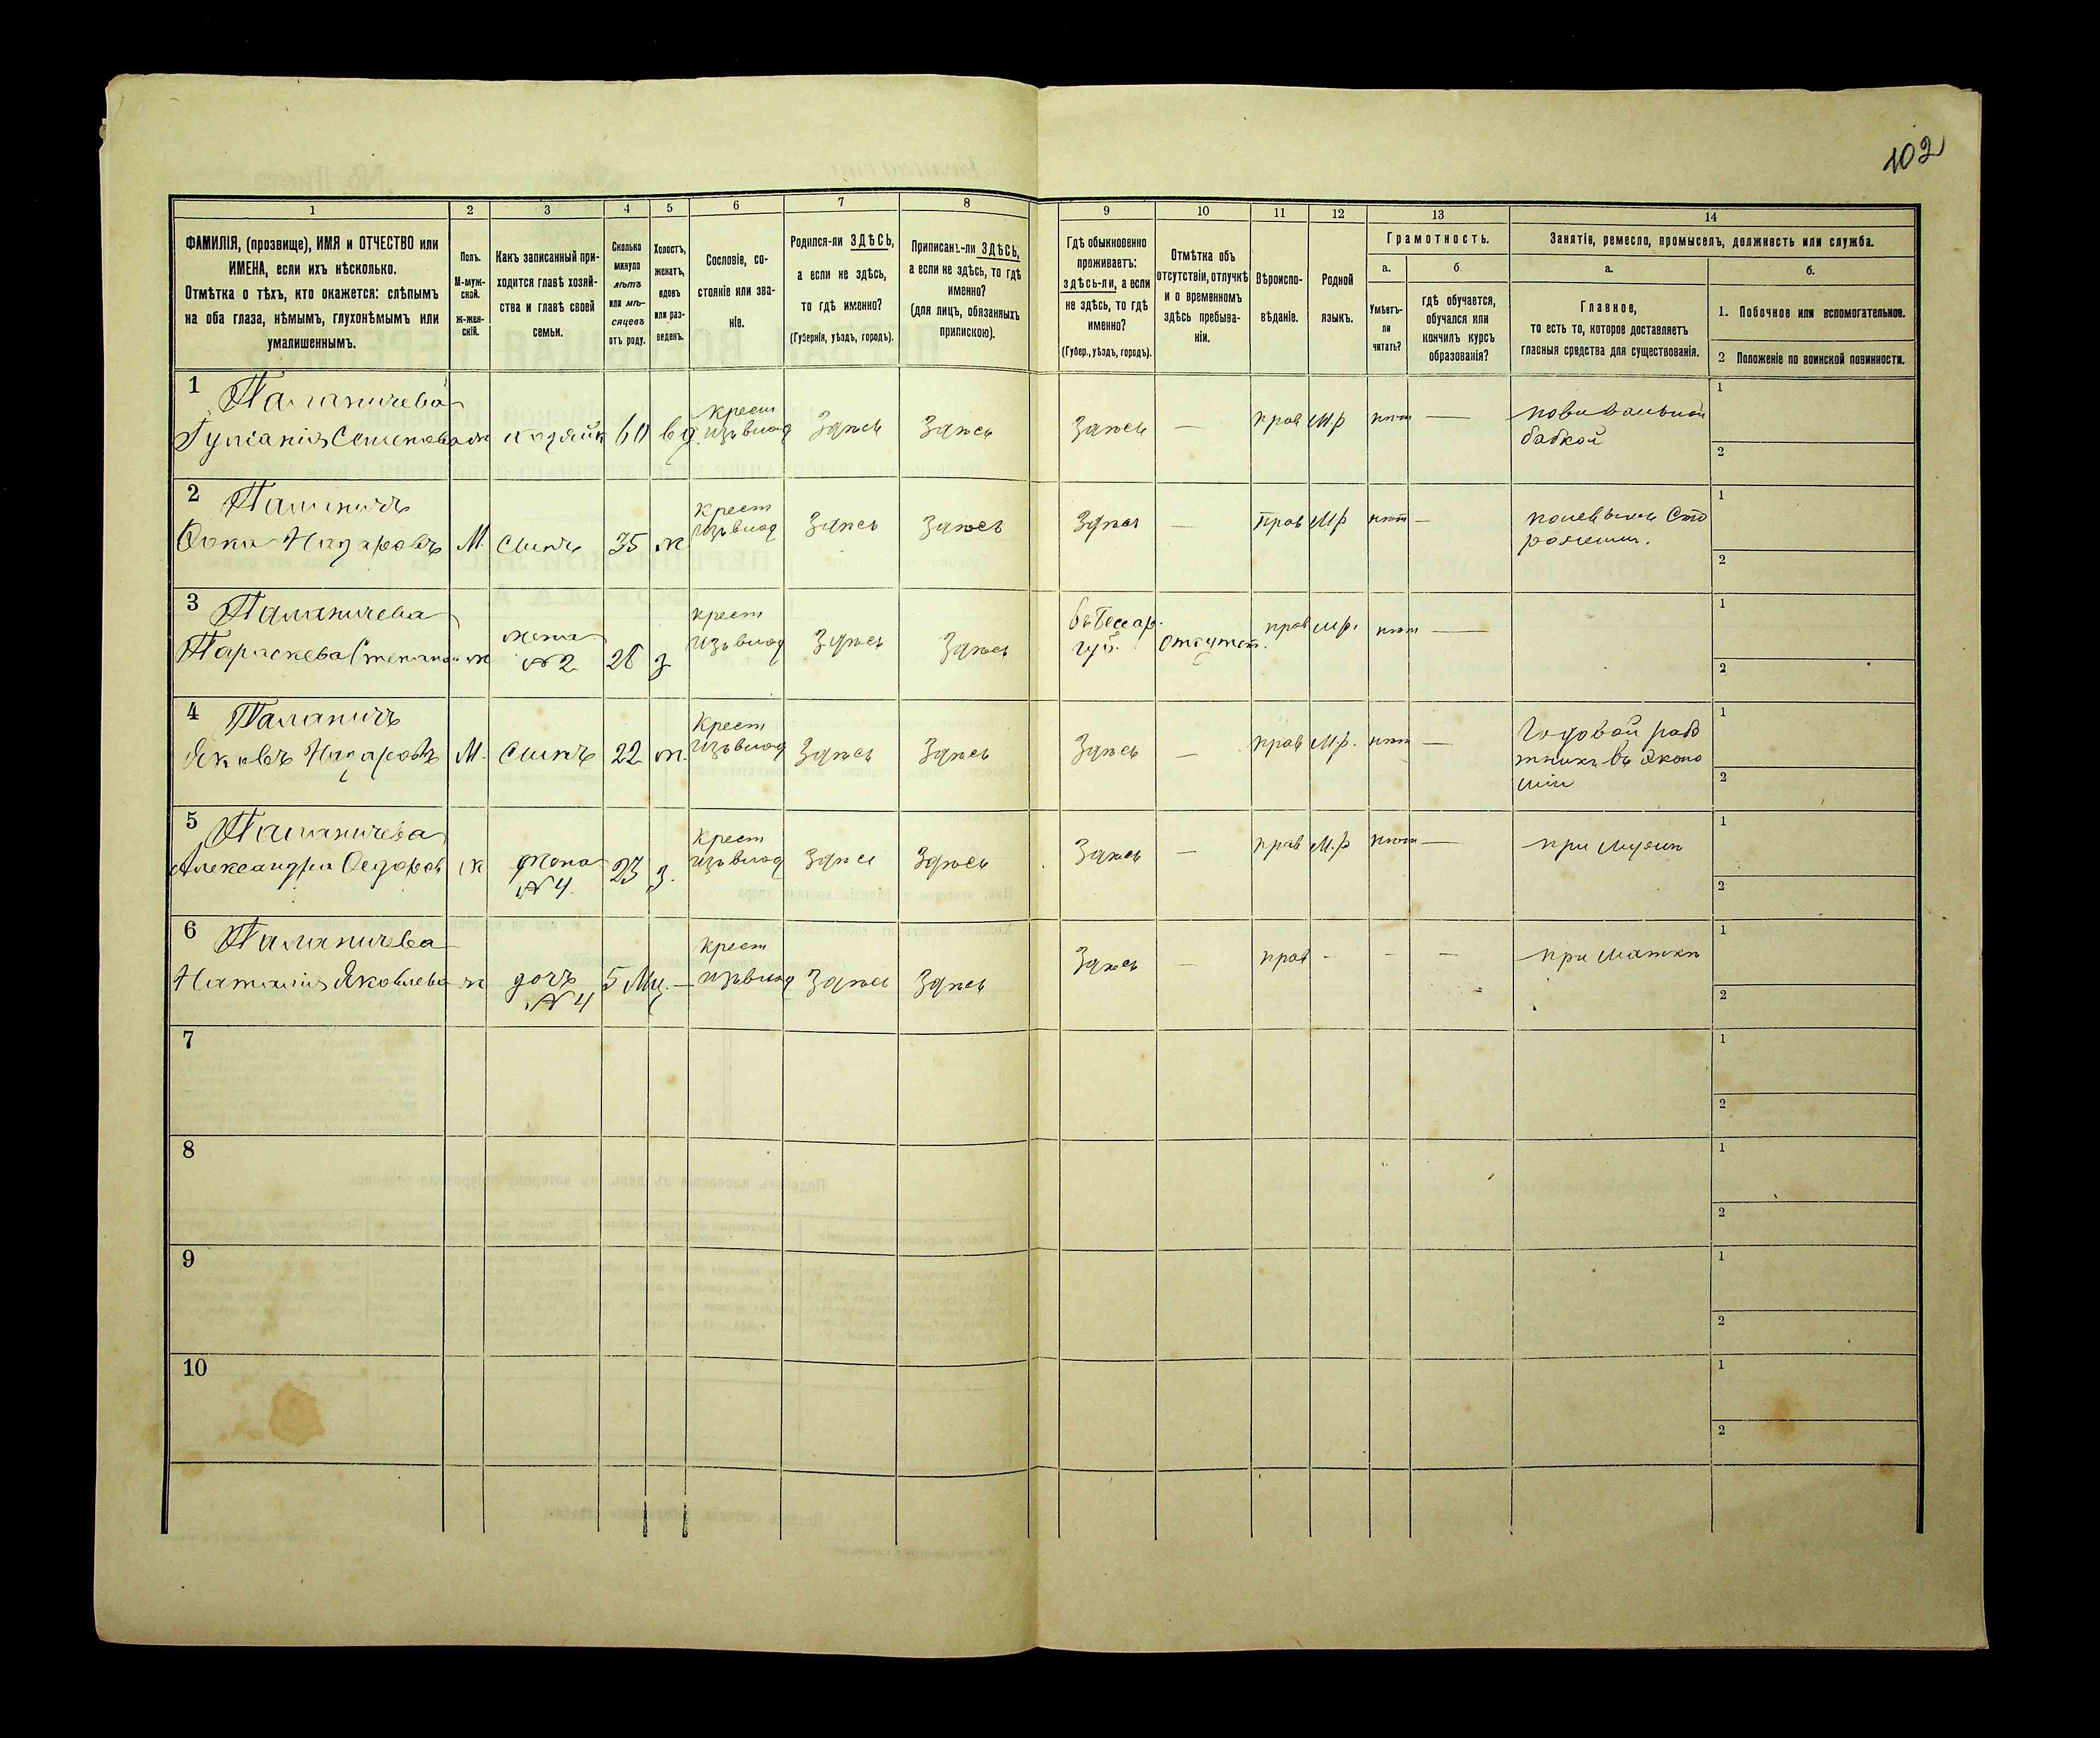 102
1 2 3 4 5 6 7 8 9 10 11 12 13 14
ФАМИЛІЯ, (прозвище), ИМЯ и ОТЧЕСТВО или
ИМЕНА, если ихъ нѣсколько.
Отмѣтка о тѣхъ, кто окажется: слѣпымъ
на оба глаза, нѣмымъ, глухонѣмымъ или
умалишеннымъ.
Полъ.
М-муж-
ской.
ж-жен-
скій.
Какъ записанный при-
ходится главѣ хозяй-
ства и главѣ своей
семьи.
Сколько
минуло
лѣтъ
или мѣ-
сяцевъ
отъ роду.
Холостъ,
женатъ,
вдовъ
или раз-
веденъ.
Сословіе, со-
стояніе или зва-
ніе.
Родился-ли ЗДѢСЬ,
а если не здѣсь,
то гдѣ именно?
(Губернія, уѣздъ, городъ).
Приписанъ-ли ЗДѢСЬ,
а если не здѣсь, то гдѣ
именно?
(для лицъ, обязанныхъ
припискою).
Гдѣ обыкновенно
проживаетъ:
здѣсь-ли, а если
не здѣсь, то гдѣ
именно?
(Губер., уѣздъ, городъ).
Отмѣтка объ
отсутствіи, отлучкѣ
и о временномъ
здѣсь пребыва-
ніи.
Вѣроиспо-
вѣданіе.
Родной
языкъ.
Грамотность.
а.
Умѣетъ-
ли
читать?
б.
гдѣ обучается,
обучался или
кончилъ курсъ
образованія?
Занятіе, ремесло, промыселъ, должность или служба.
а.
Главное,
то есть то, которое доставляетъ
гласныя средства для существованія.
б.
1. Побочное или вспомогательное.
2 Положеніе по воинской повинности.
1 Паланичева крест повивальной 1
ж хозяйк 60 вд. изъ влад Здѣсь Здѣсь Здѣсь — прав М.р нѣт — бабкой
2
2 Паланичъ крест 1
Назаровъ М. Сынъ 35 ж изъ влад Здѣсь Здѣсь Здѣсь — прав М.р нѣт — полевымъ Сто
рожемъ. 2
3 Паланичева жена крест въ Бессар. 1
Параскева ж №2 28 з изъ влад Здѣсь Здѣсь губ. Отсутст. прав М.р. нѣт —
2
4 Паланичъ крест Годовой рабо 1
Яковъ Назаровъ М. Сынъ 22 ж. изъ влад Здѣсь Здѣсь Здѣсь — прав М.р. нѣт — тникъ въ эконо
міи 2
5 Паланичева жена крест 1
Александра Федоров ж №4. 23 з. изъ влад Здѣсь Здѣсь Здѣсь — прав М.р нѣт — при мужѣ
2
6 Паланичева дочь крест 1
Наталія Яковлева ж №4 5 Мц. — изъ влад Здѣсь Здѣсь Здѣсь — прав - - — при маткѣ
2
7 1
2
8 1
2
9 1
2
10 1
2